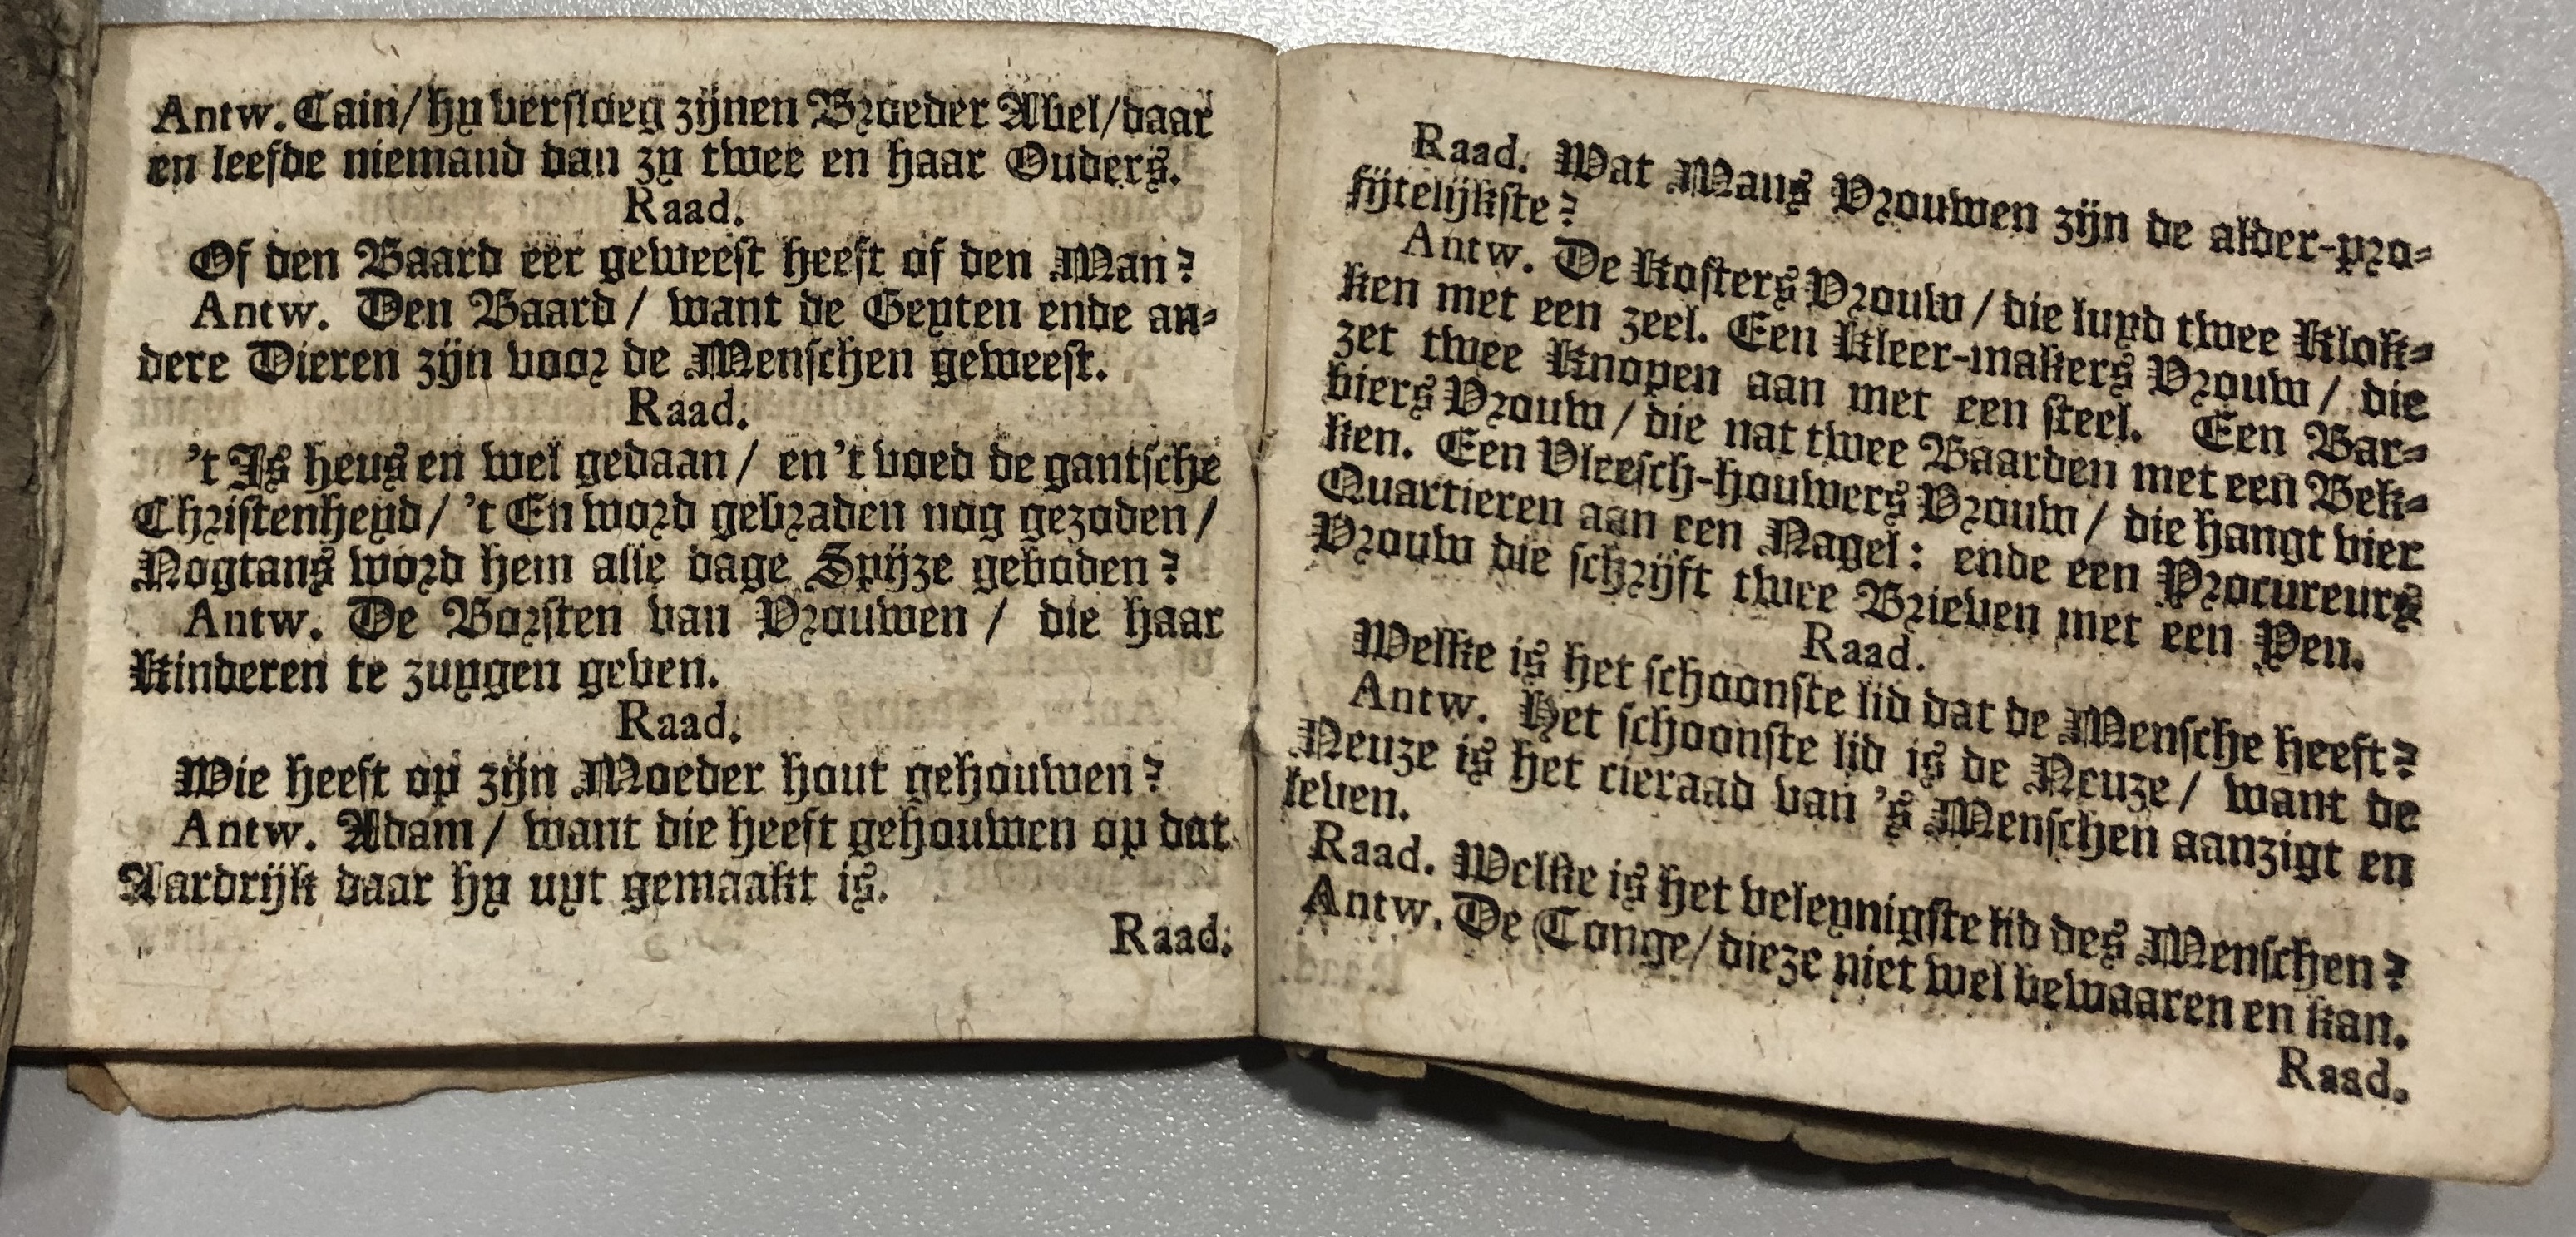 Antw. Cain/ hy versloeg zijnen Broeder Abel/ daar
en leefde niemand dan zy twee en haar Ouders.
Raad.
Of den Baard eer geweest heeft of den Man?
Antw. Den Baard/ want de Geyten ende an-
dere Dieren zijn voor de Menschen geweest.
Raad.
't Is heus en wel gedaan/ en 't voed de gantsche
Christenheyd/ 't En word gebraden nog gezoden/
Nogtans word hem alle dage Spijze geboden?
Antw. De Borsten van Vrouwen/ die haar
Kinderen te zuygen geven.
Raad.
Wie heeft op zijn Moeder hout gehouwen?
Antw. Adam/ want die heeft gehouwen op dat
Aardrijk daar hy uyt gemaakt is.
Raad.
Raad. Wat Mans Vrouwen zijn de alder-pro-
fijtelijkste?
Antw. De Kosters Vrouw/ die luyd twee Klok-
ken met een zeel. Een Kleer-makers Vrouw/ die
zet twee Knopen aan met een steel. Een Bar-
biers Vrouw/ die nat twee Baarden met een Bek-
ken. Een Vleesch-houwers Vrouw/ die hangt vier
Quartieren aan een Nagel: ende een Procureurs
Vrouw die schrijft twee Brieven met een Pen.
Raad.
Welke is het schoonste lid dat de Mensche heeft?
Antw. Het schoonste lid is de Neuze/ want de
Neuze is het cieraad van 's Menschen aanzigt en
leven.
Raad. Welke is het veleynigste lid des Menschen?
Antw. De Tonge/ dieze niet wel bewaaren en kan.
Raad.